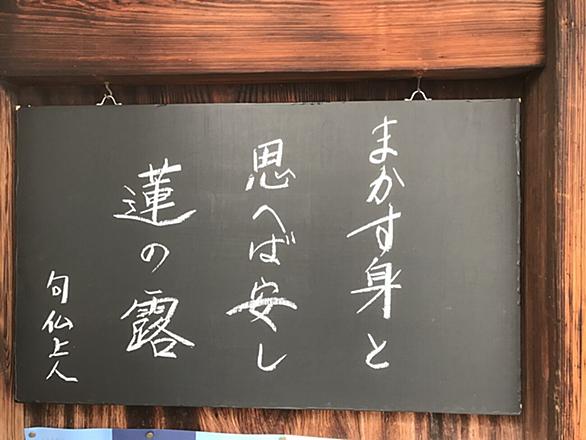 まかす身と
思へば安し
蓮の露
句仏上人